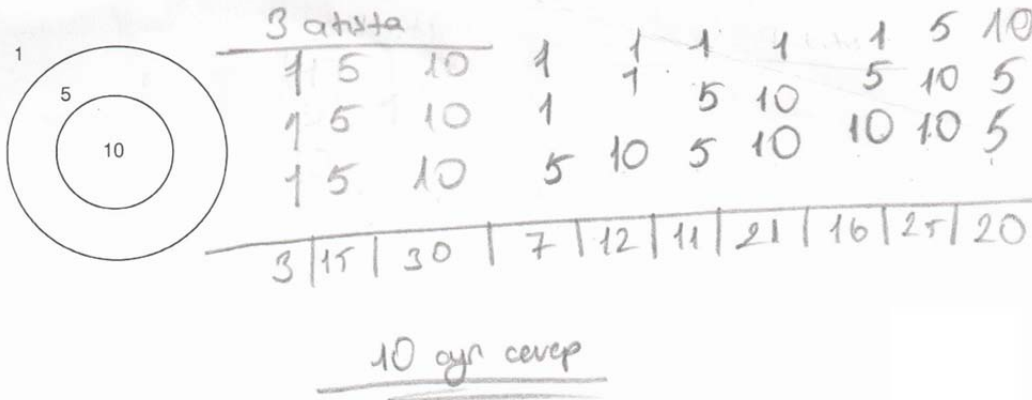 3 atışta
1
5
10
1 5 10 1 1 1 1 1 5 10
1 5 10 1 1 5 10 5 10 5
1 5 10 5 10 5 10 10 10 5
3 | 15 | 30 | 7 | 12 | 11 | 21 | 16 | 25 | 20
10 ayrı cevap